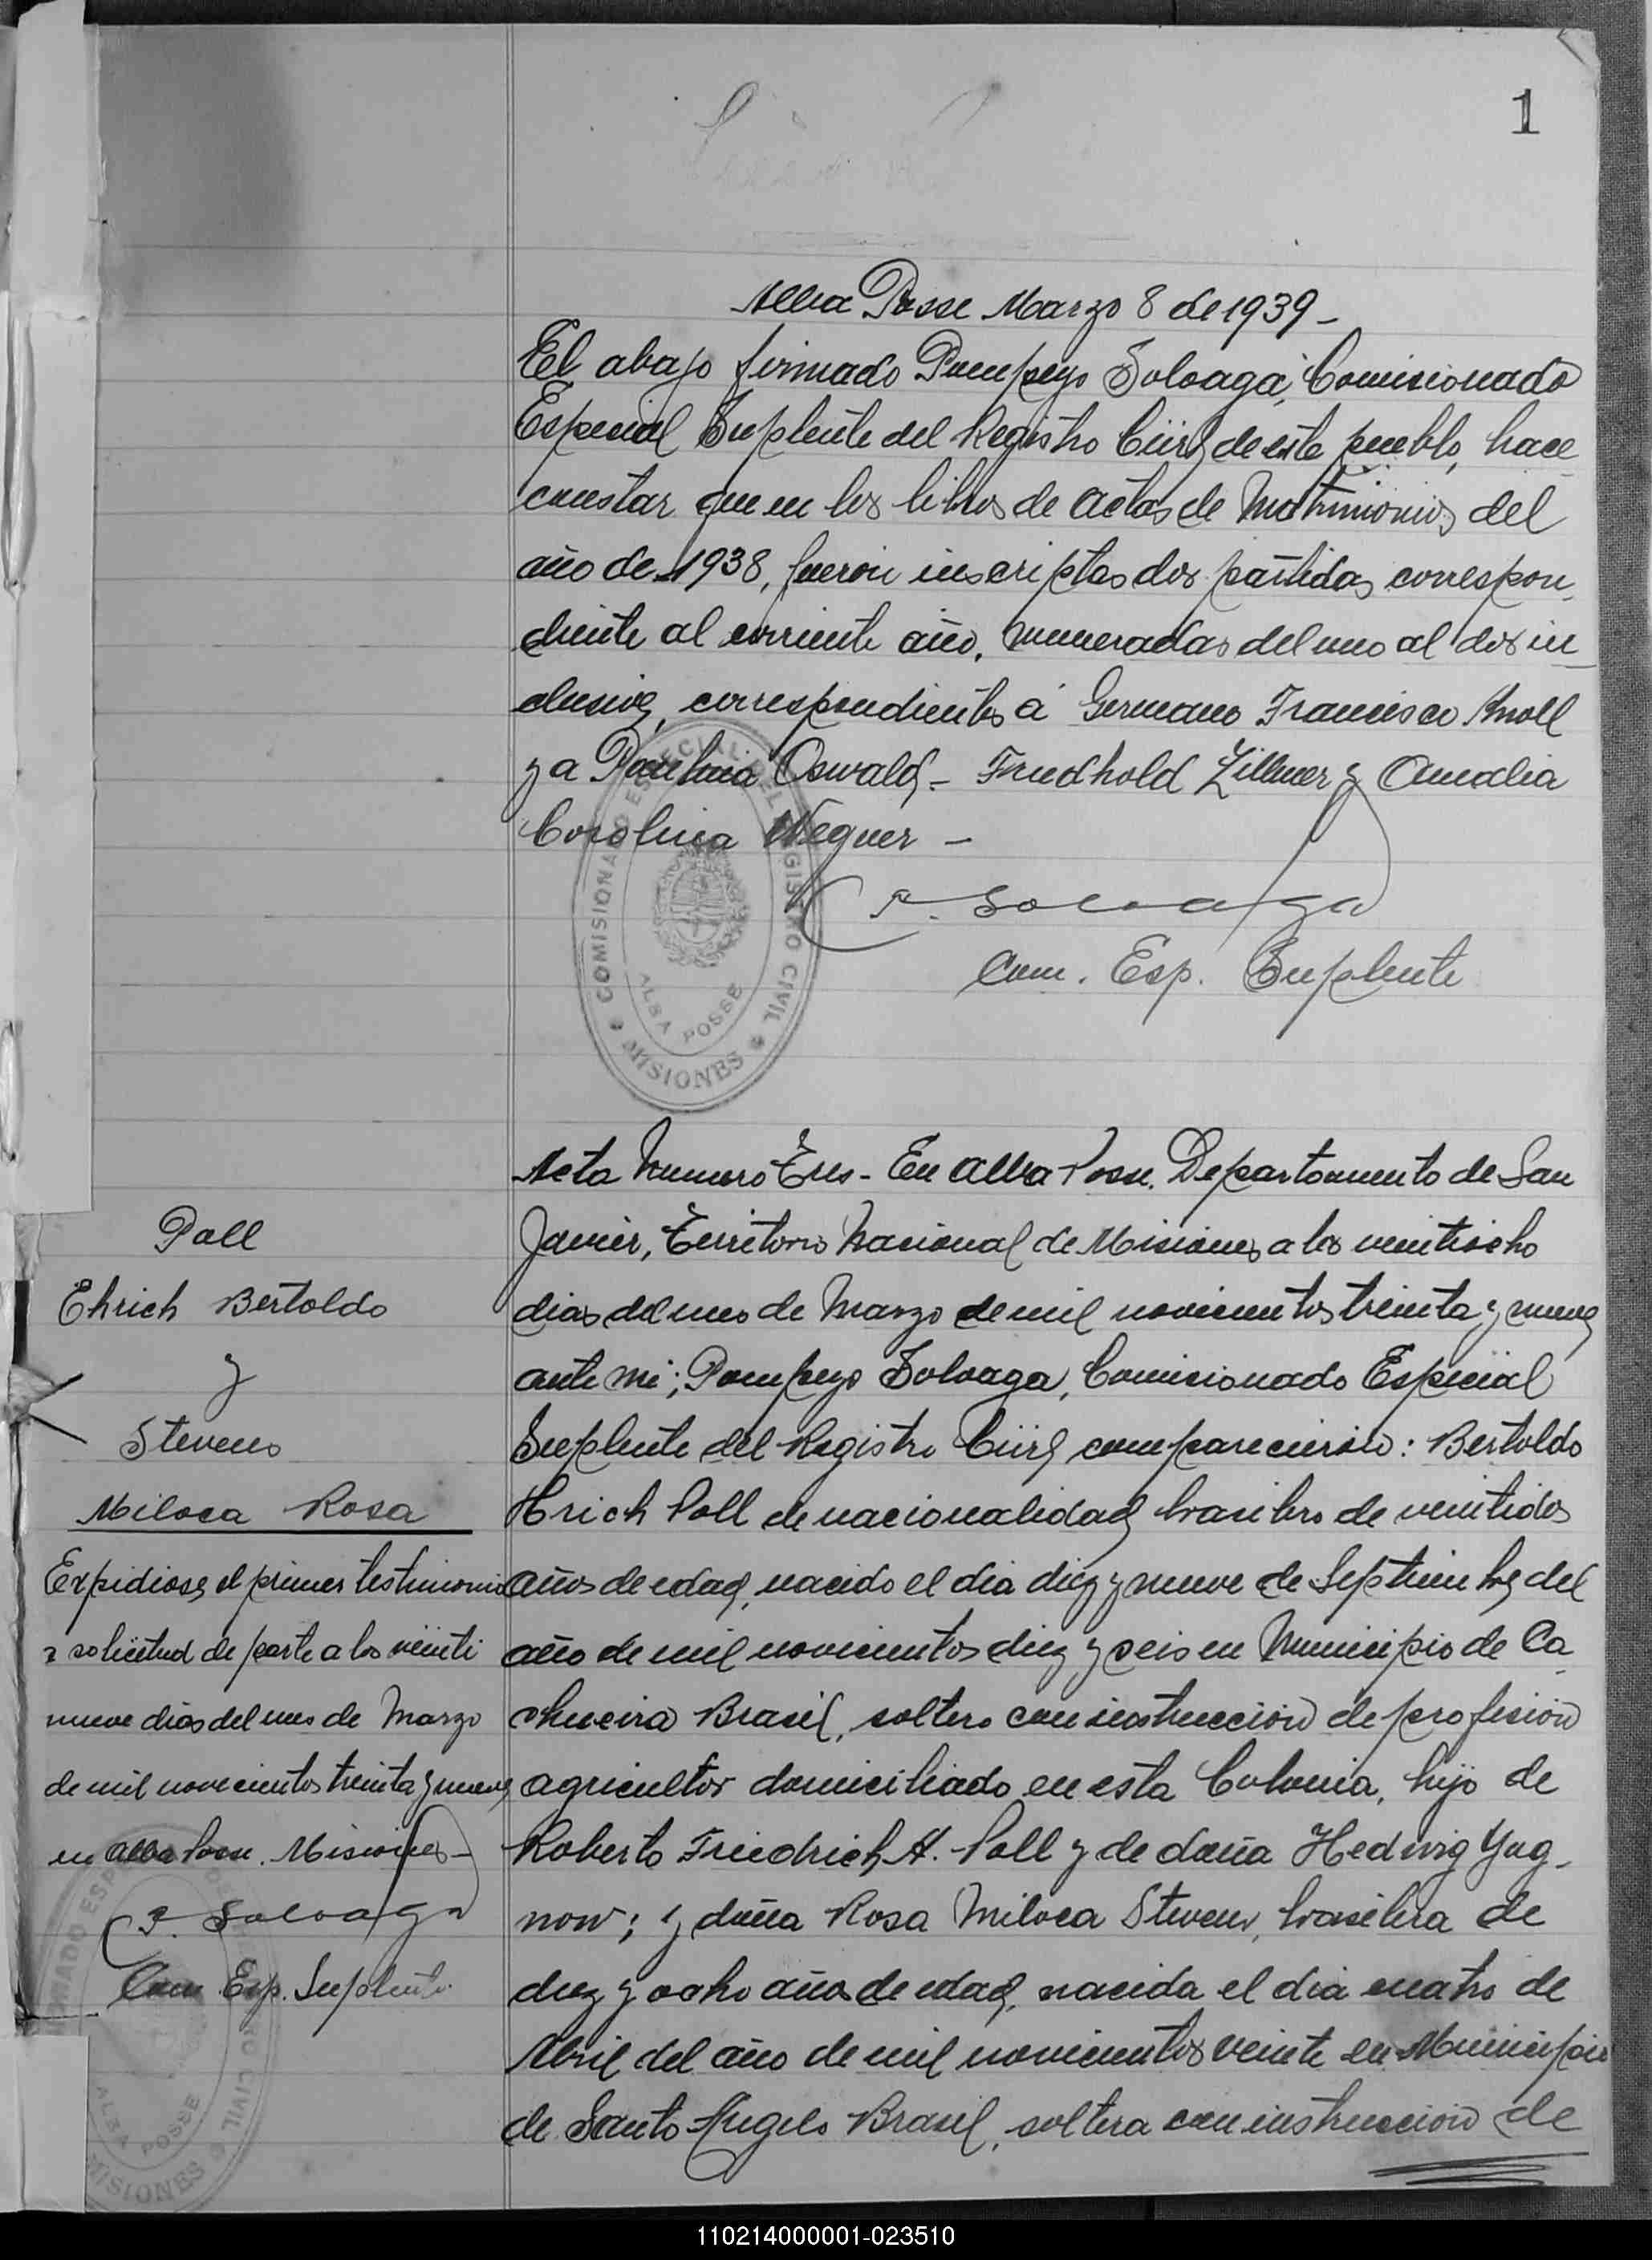 1
Alba Posse Marzo 8 de 1939 -
El abajo firmado Pompeyo Soloaga, Comisionado
Especial Suplente del Registro Civil de este pueblo, hace
constar que en los libros de actas de Matrimonios del
año de 1938, fueron inscriptas dos partidas correspon-
diente al corriente año, numeradas del uno al dos in-
clusive, correspondientes á Germano Francisco Knoll
y a Paulina Oswald - Friedhold Zillmer y Amalia
Carolina Wegner -
P. Soloaga
Com. Esp. Suplente
COMISIONADO ESPECIAL DEL REGISTRO CIVIL
ALBA POSSE
MISIONES
Acta Numero Tres - En Alba Posse, Departamento de San
Javier, Territorio Nacional de Misiones a los veintiocho
dias del mes de Marzo de mil novecientos treinta y nueve
ante mi; Pompeyo Soloaga, Comisionado Especial
Suplente del Registro Civil comparecieron: Bertoldo
Hrich Poll de nacionalidad brasilero de veintidos
años de edad, nacido el dia diez y nueve de Septiembre del
año de mil novecientos diez y seis en Municipio de Ca
chueira Brasil, soltero con instruccion de profesion
agricultor domiciliado en esta Colonia, hijo de
Roberto Friedrich A. Poll y de doña Hedwig Yag-
now; y doña Rosa Miloca Stevens, brasilera de
diez y ocho años de edad, nacida el dia cuatro de
Abril del año de mil novecientos veinte en Municipio
de Santo Angelo Brasil, soltera con instruccion de
Poll
Ehrich Bertoldo
y
Stevens
Miloca Rosa
Expidiose el primer testimonio
a solicitud de parte a los veinti
nueve dias del mes de Marzo
de mil novecientos treinta y nueve
en Alba Posse. Misiones -
P. Soloaga
Com. Esp. Suplente
ALBA POSSE
MISIONES
110214000001-023510